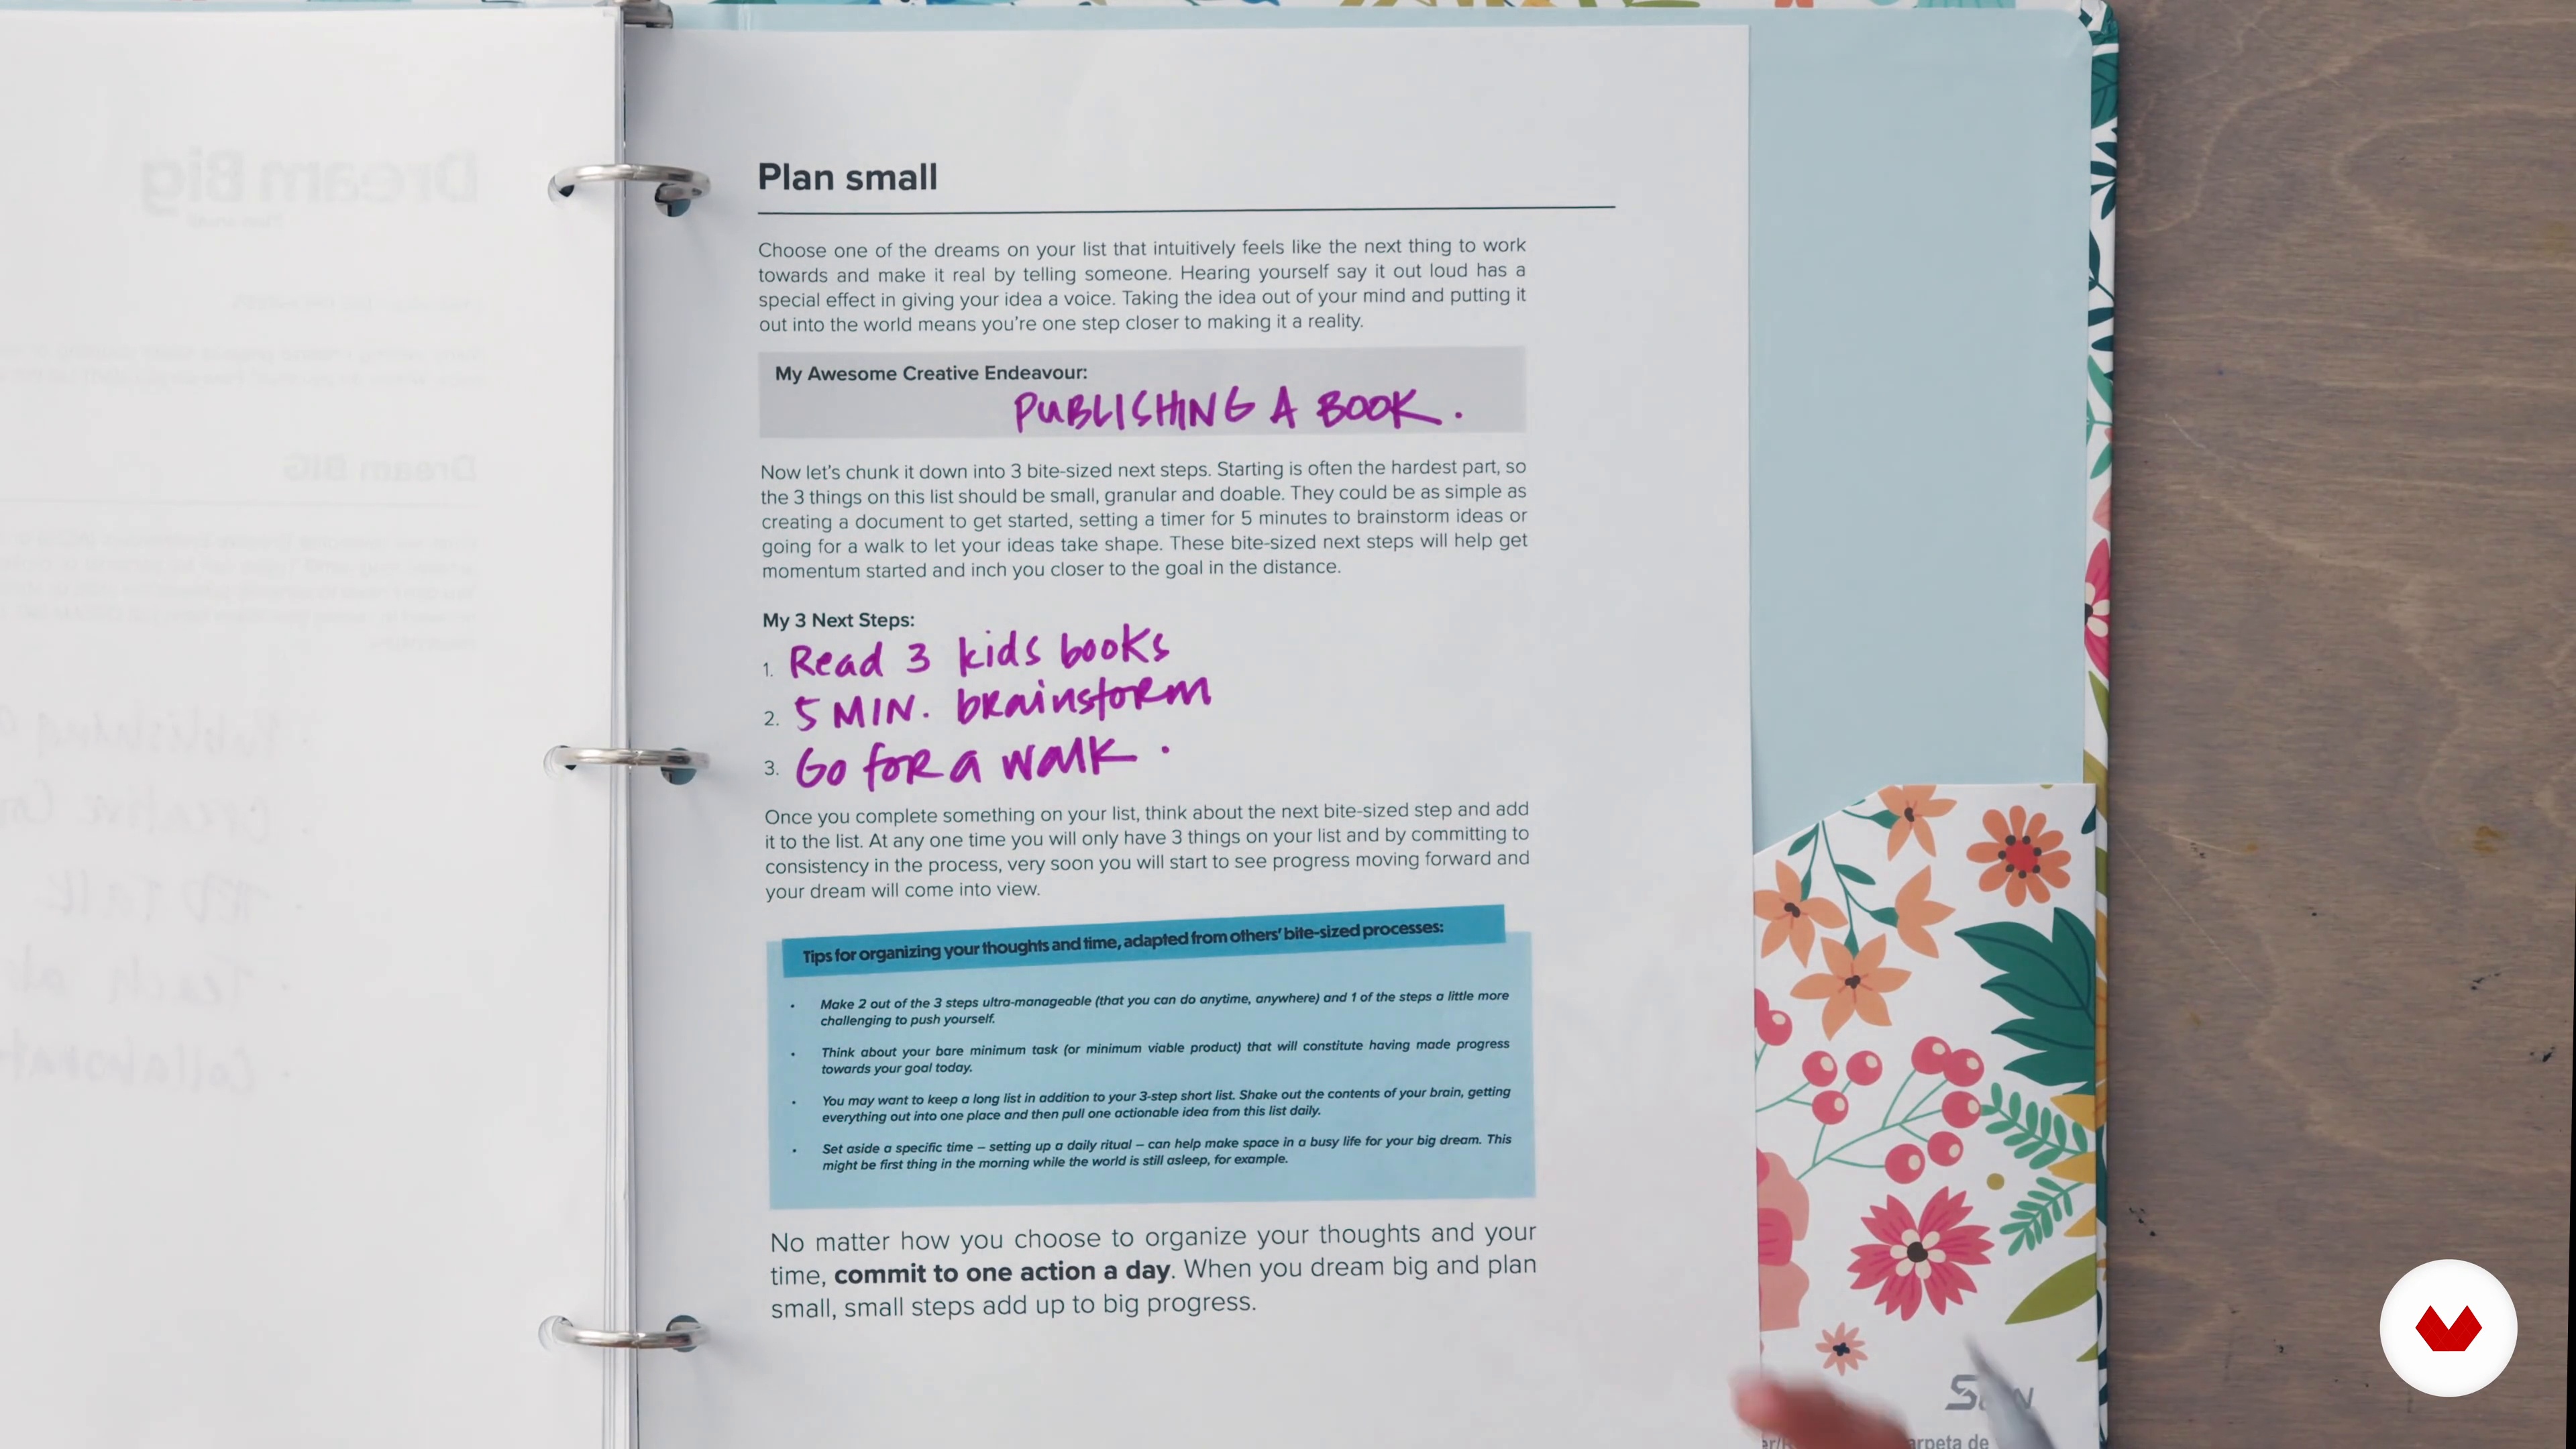 Dream Big
Dream BIG
Plan small
Choose one of the dreams on your list that intuitively feels like the next thing to work
towards and make it real by telling someone. Hearing yourself say it out loud has a
special effect in giving your idea a voice. Taking the idea out of your mind and putting it
out into the world means you’re one step closer to making it a reality.
My Awesome Creative Endeavour:
PUBLISHING A BOOK.
Now let’s chunk it down into 3 bite-sized next steps. Starting is often the hardest part, so
the 3 things on this list should be small, granular and doable. They could be as simple as
creating a document to get started, setting a timer for 5 minutes to brainstorm ideas or
going for a walk to let your ideas take shape. These bite-sized next steps will help get
momentum started and inch you closer to the goal in the distance.
My 3 Next Steps:
1. Read 3 kids books
2. 5 MIN. brainstorm
3. Go for a walk.
Once you complete something on your list, think about the next bite-sized step and add
it to the list. At any one time you will only have 3 things on your list and by committing to
consistency in the process, very soon you will start to see progress moving forward and
your dream will come into view.
Tips for organizing your thoughts and time, adapted from others’ bite-sized processes:
• Make 2 out of the 3 steps ultra-manageable (that you can do anytime, anywhere) and 1 of the steps a little more
challenging to push yourself.
• Think about your bare minimum task (or minimum viable product) that will constitute having made progress
towards your goal today.
• You may want to keep a long list in addition to your 3-step short list. Shake out the contents of your brain, getting
everything out into one place and then pull one actionable idea from this list daily.
• Set aside a specific time – setting up a daily ritual – can help make space in a busy life for your big dream. This
might be first thing in the morning while the world is still asleep, for example.
No matter how you choose to organize your thoughts and your
time, commit to one action a day. When you dream big and plan
small, small steps add up to big progress.
de